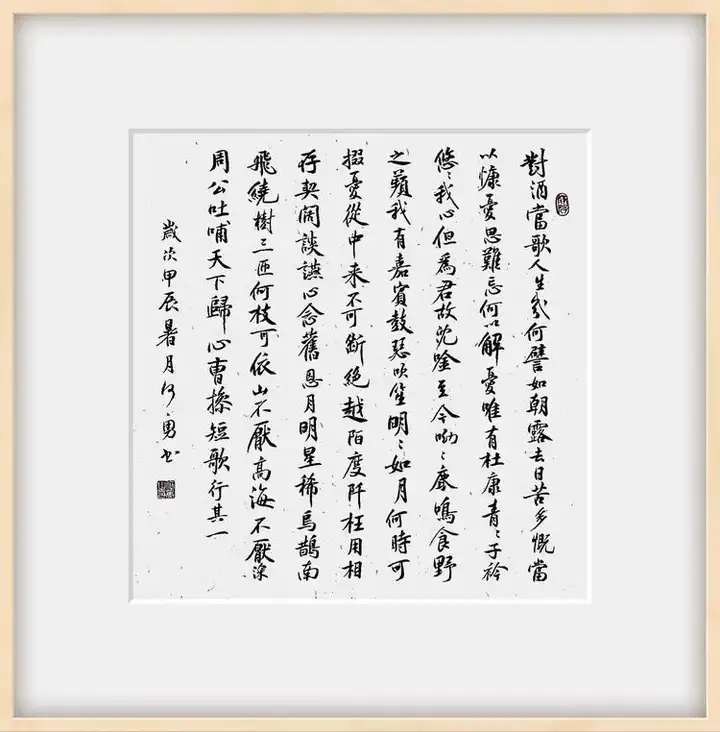 對酒當歌人生幾何譬如朝露去日苦多慨當
以慷憂思難忘何以解憂唯有杜康青〻子衿
悠〻我心但爲君故沈吟至今呦〻鹿鳴食野
之蘋我有嘉賓鼓瑟吹笙明〻如月何時可
掇憂從中来不可斷絕越陌度阡枉用相
存契闊談讌心念舊恩月明星稀烏鵲南
飛繞樹三匝何枝可依山不厭高海不厭深
周公吐哺天下歸心曹操短歌行其一
歲次甲辰暑月何勇书